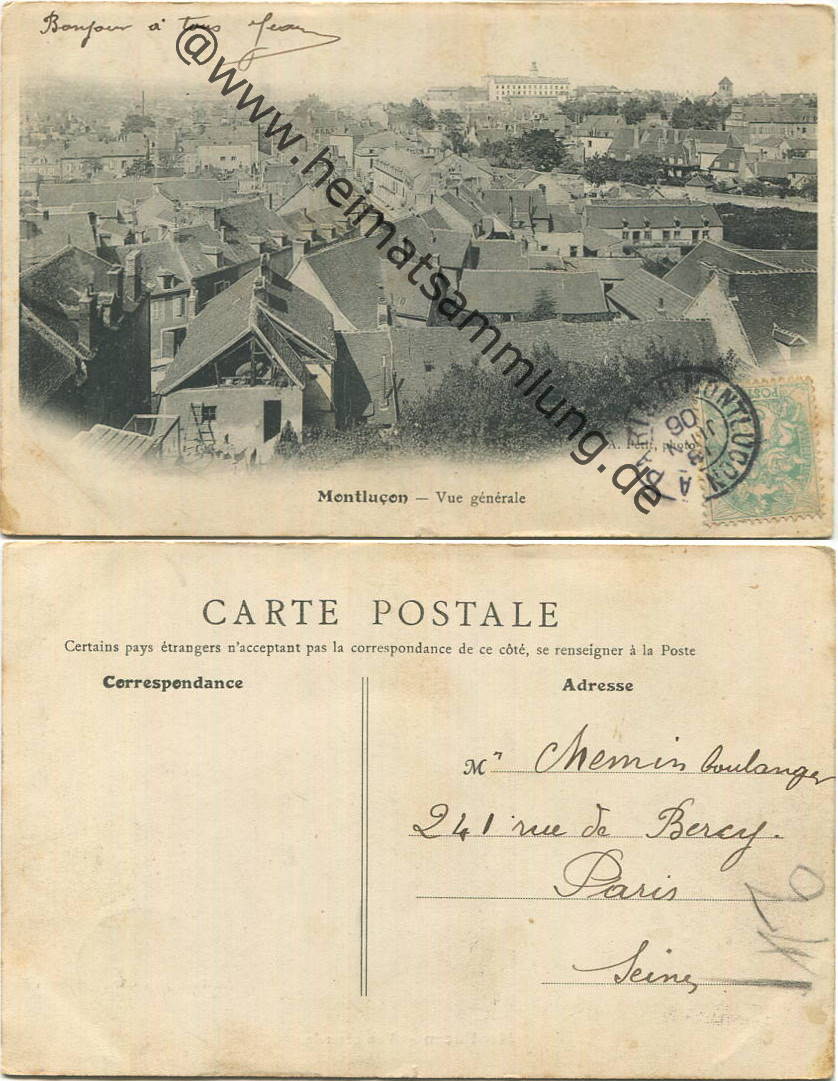 Bonjour à tous Jean
@www.heimatsammlung.de
A. Petit, photo
PARIS A MONTLUÇON
13
JUIN
06
POSTES
Montluçon — Vue générale
CARTE POSTALE
Certains pays étrangers n'acceptent pas la correspondance de ce côté, se renseigner à la Poste
Correspondance
Adresse
Mr Chemin boulanger
241 rue de Bercy.
Paris
Seine